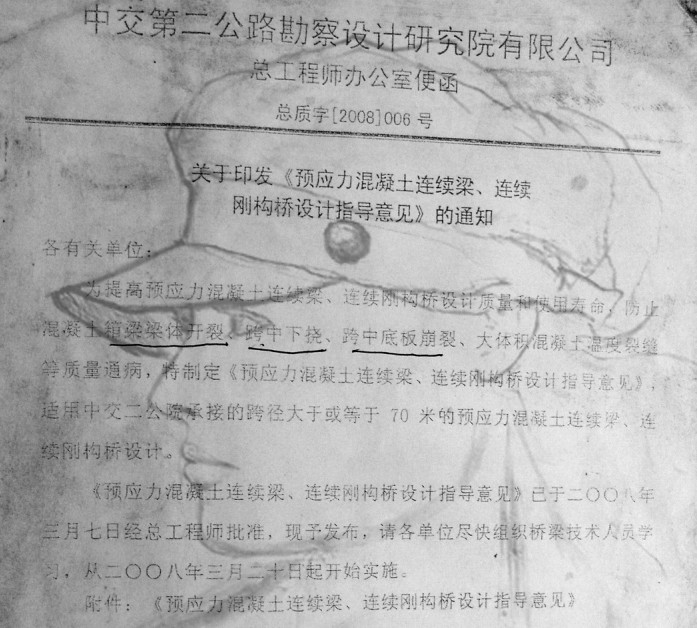 中交第二公路勘察设计研究院有限公司
总工程师办公室便函
总质字[2008]006 号
关于印发《预应力混凝土连续梁、连续
刚构桥设计指导意见》的通知
各有关单位：
为提高预应力混凝土连续梁、连续刚构桥设计质量和使用寿命，防止
混凝土箱梁梁体开裂、跨中下挠、跨中底板崩裂、大体积混凝土温度裂缝
等质量通病，特制定《预应力混凝土连续梁、连续刚构桥设计指导意见》，
适用中交二公院承接的跨径大于或等于 70 米的预应力混凝土连续梁、连
续刚构桥设计。
《预应力混凝土连续梁、连续刚构桥设计指导意见》已于二〇〇八年
三月七日经总工程师批准，现予发布，请各单位尽快组织桥梁技术人员学
习，从二〇〇八年三月二十日起开始实施。
附件：《预应力混凝土连续梁、连续刚构桥设计指导意见》